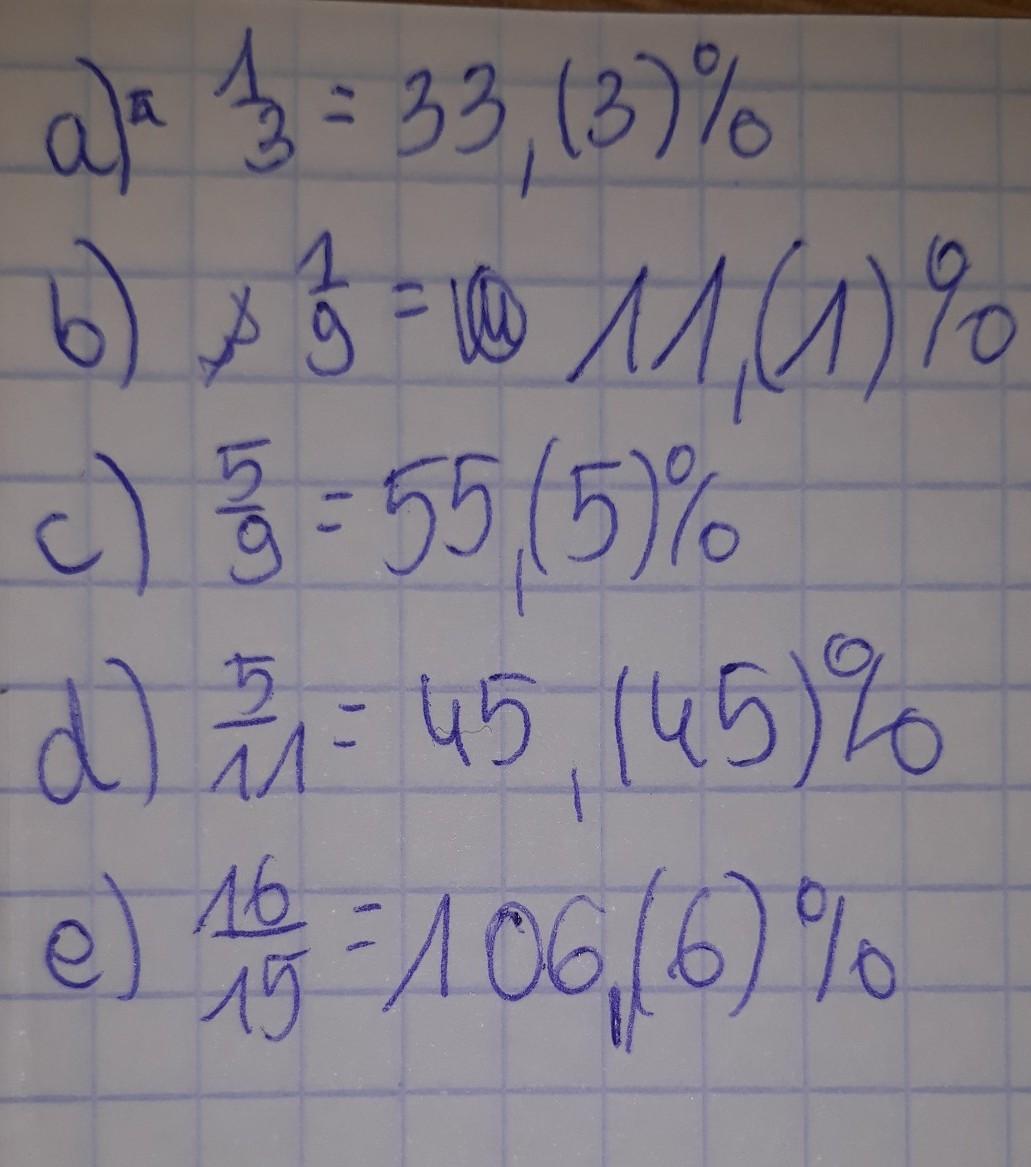 a) 1/3 = 33,(3)%
b) 1/9 = 11,(1)%
c) 5/9 = 55,(5)%
d) 5/11 = 45,(45)%
e) 16/15 = 106,(6)%